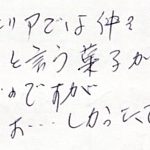 リアでは仲々
と言う菓子が
のですが
お…しかったで